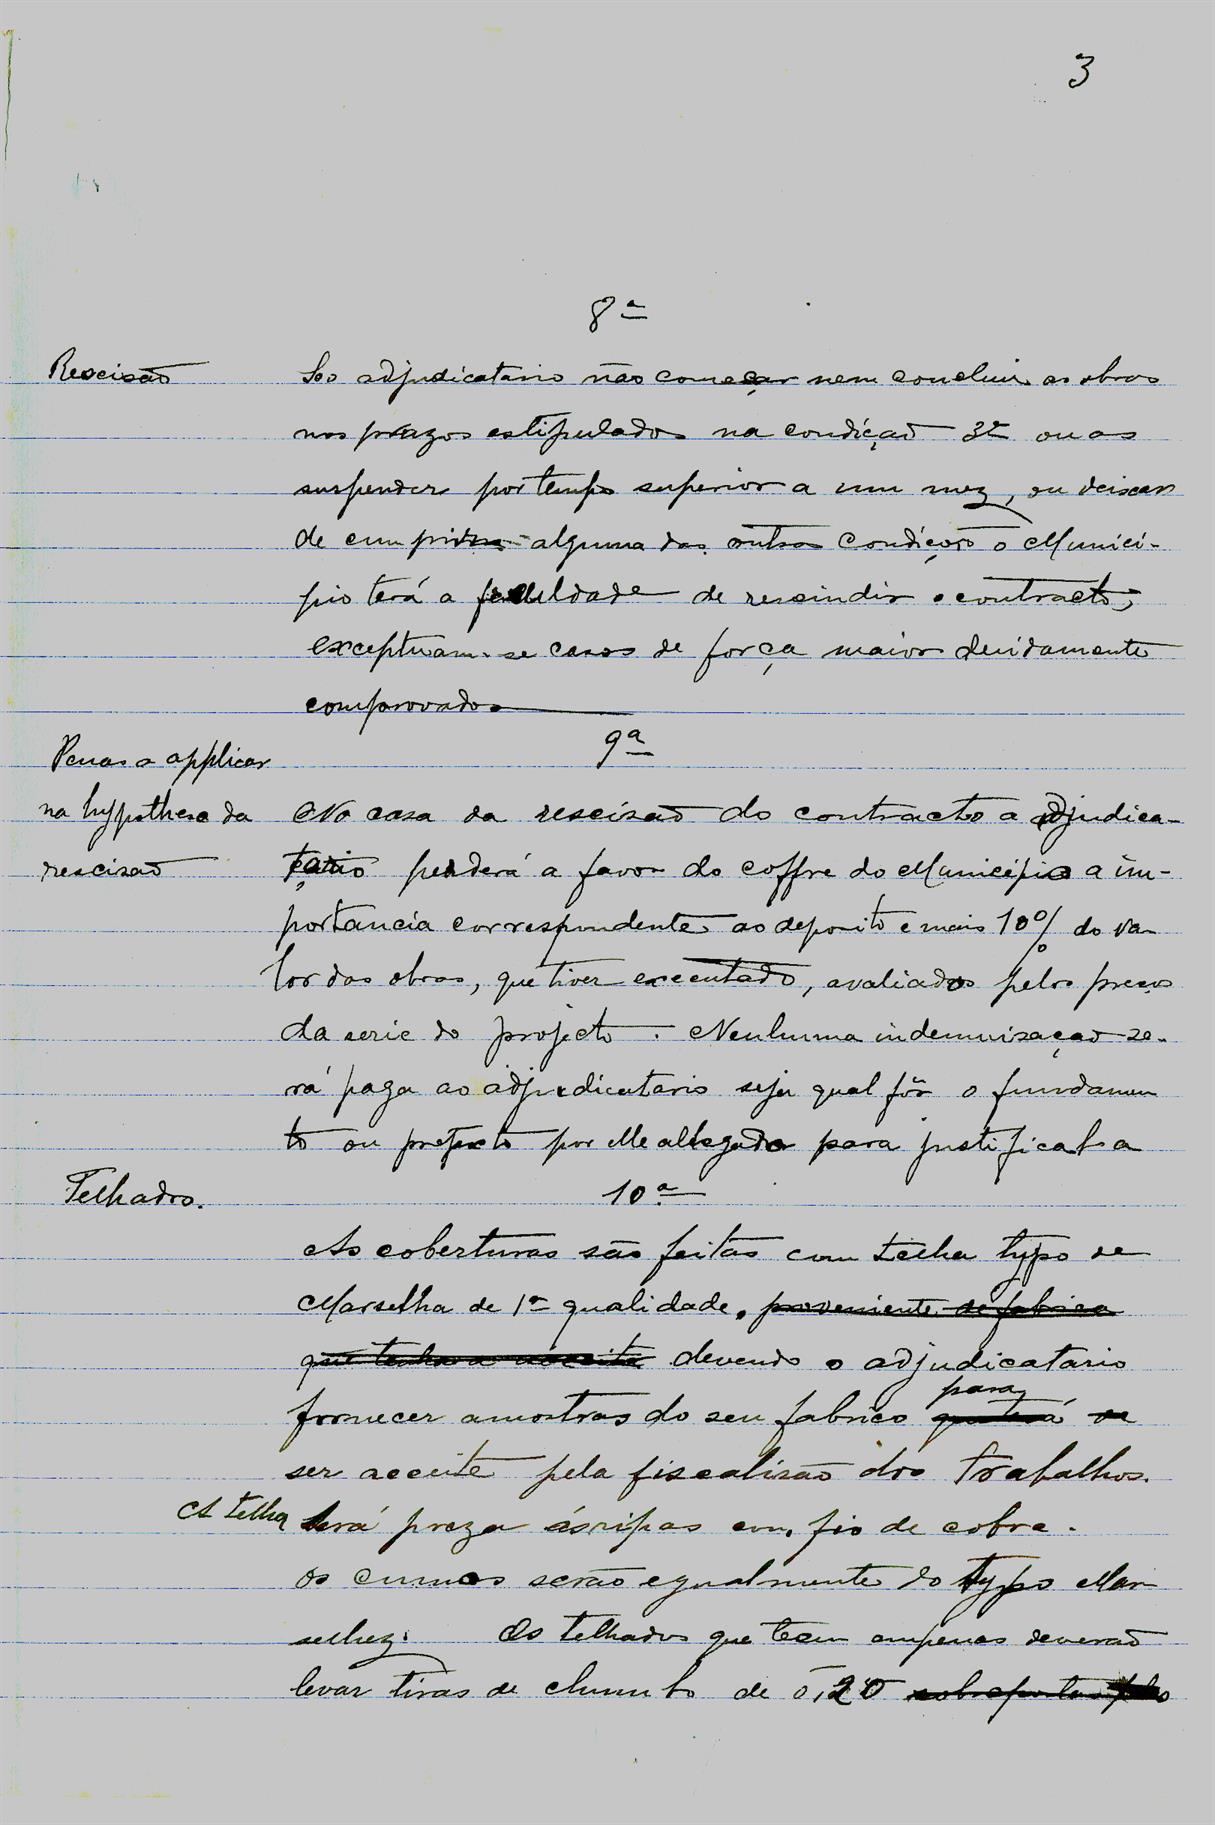 3
8ª
Rescisão
Se o adjudicatario não começar nem concluir as obras
nos prazos estipulados na condição 3ª ou as
suspender por tempo superior a um mez, ou deixar
de cumprir alguma das outras condições o Munici-
pio terá a faculdade de rescindir o contracto;
exceptuam-se casos de força maior devidamente
comprovados
9ª
Penas a applicar
na hypothese da
rescisão
No caso da rescisão do contracto o adjudica-
tario perderá a favor do coffre do Municipio a im-
portancia correspondente ao deposito e mais 10% do va-
lor das obras, que tiver executado, avaliados pelos preços
da serie do projecto. Nenhuma indemnisação se-
rá paga ao adjudicatario seja qual fôr o fundamen
to ou pretexto por elle allegado para justifical-a
Telhados.
10ª
As coberturas são feitas com telha typo de
Marselha de 1ª qualidade, proveniente de fabrica
que tenha a devendo o adjudicatario
fornecer amostras do seu fabrico para
ser acceite pela fiscalisão dos trabalhos.
A telha será preza ás ripas com fio de cobre.
Os cumes serão egualmente do typo Mar
selhez. Os telhados que teem empenas deverão
levar tiras de chumbo de 0,20 sobrepostas pelo